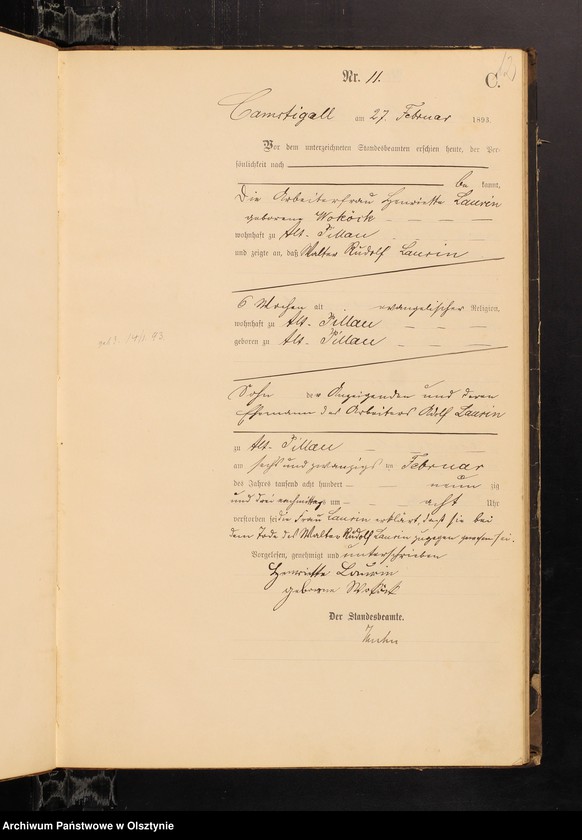 Nr. 11.
C.
Camstigall am 27. Februar 1893.
Vor dem unterzeichneten Standesbeamten erschien heute, der Per-
sönlichkeit nach
be kannt,
Die Arbeiterfrau Henriette Laurin
geborene Woköck
wohnhaft zu Alt-Pillau
und zeigte an, daß Walter Rudolf Laurin
6 Wochen alt evangelischer Religion,
wohnhaft zu Alt-Pillau
geboren zu Alt-Pillau
Sohn der Anzeigenden und deren
Ehemann des Arbeiters Adolf Laurin
zu Alt-Pillau
am sechs und zwanzigs ten Februar
des Jahres tausend acht hundert neun zig
und drei nachmittags um acht Uhr
verstorben sei die Frau Laurin erklärt, daß sie bei
dem Tode des Walter Rudolf Laurin zugegen gewesen sei.
Vorgelesen, genehmigt und unterschrieben
Henriette Laurin
geborene Woköck
Der Standesbeamte.
Archiwum Państwowe w Olsztynie